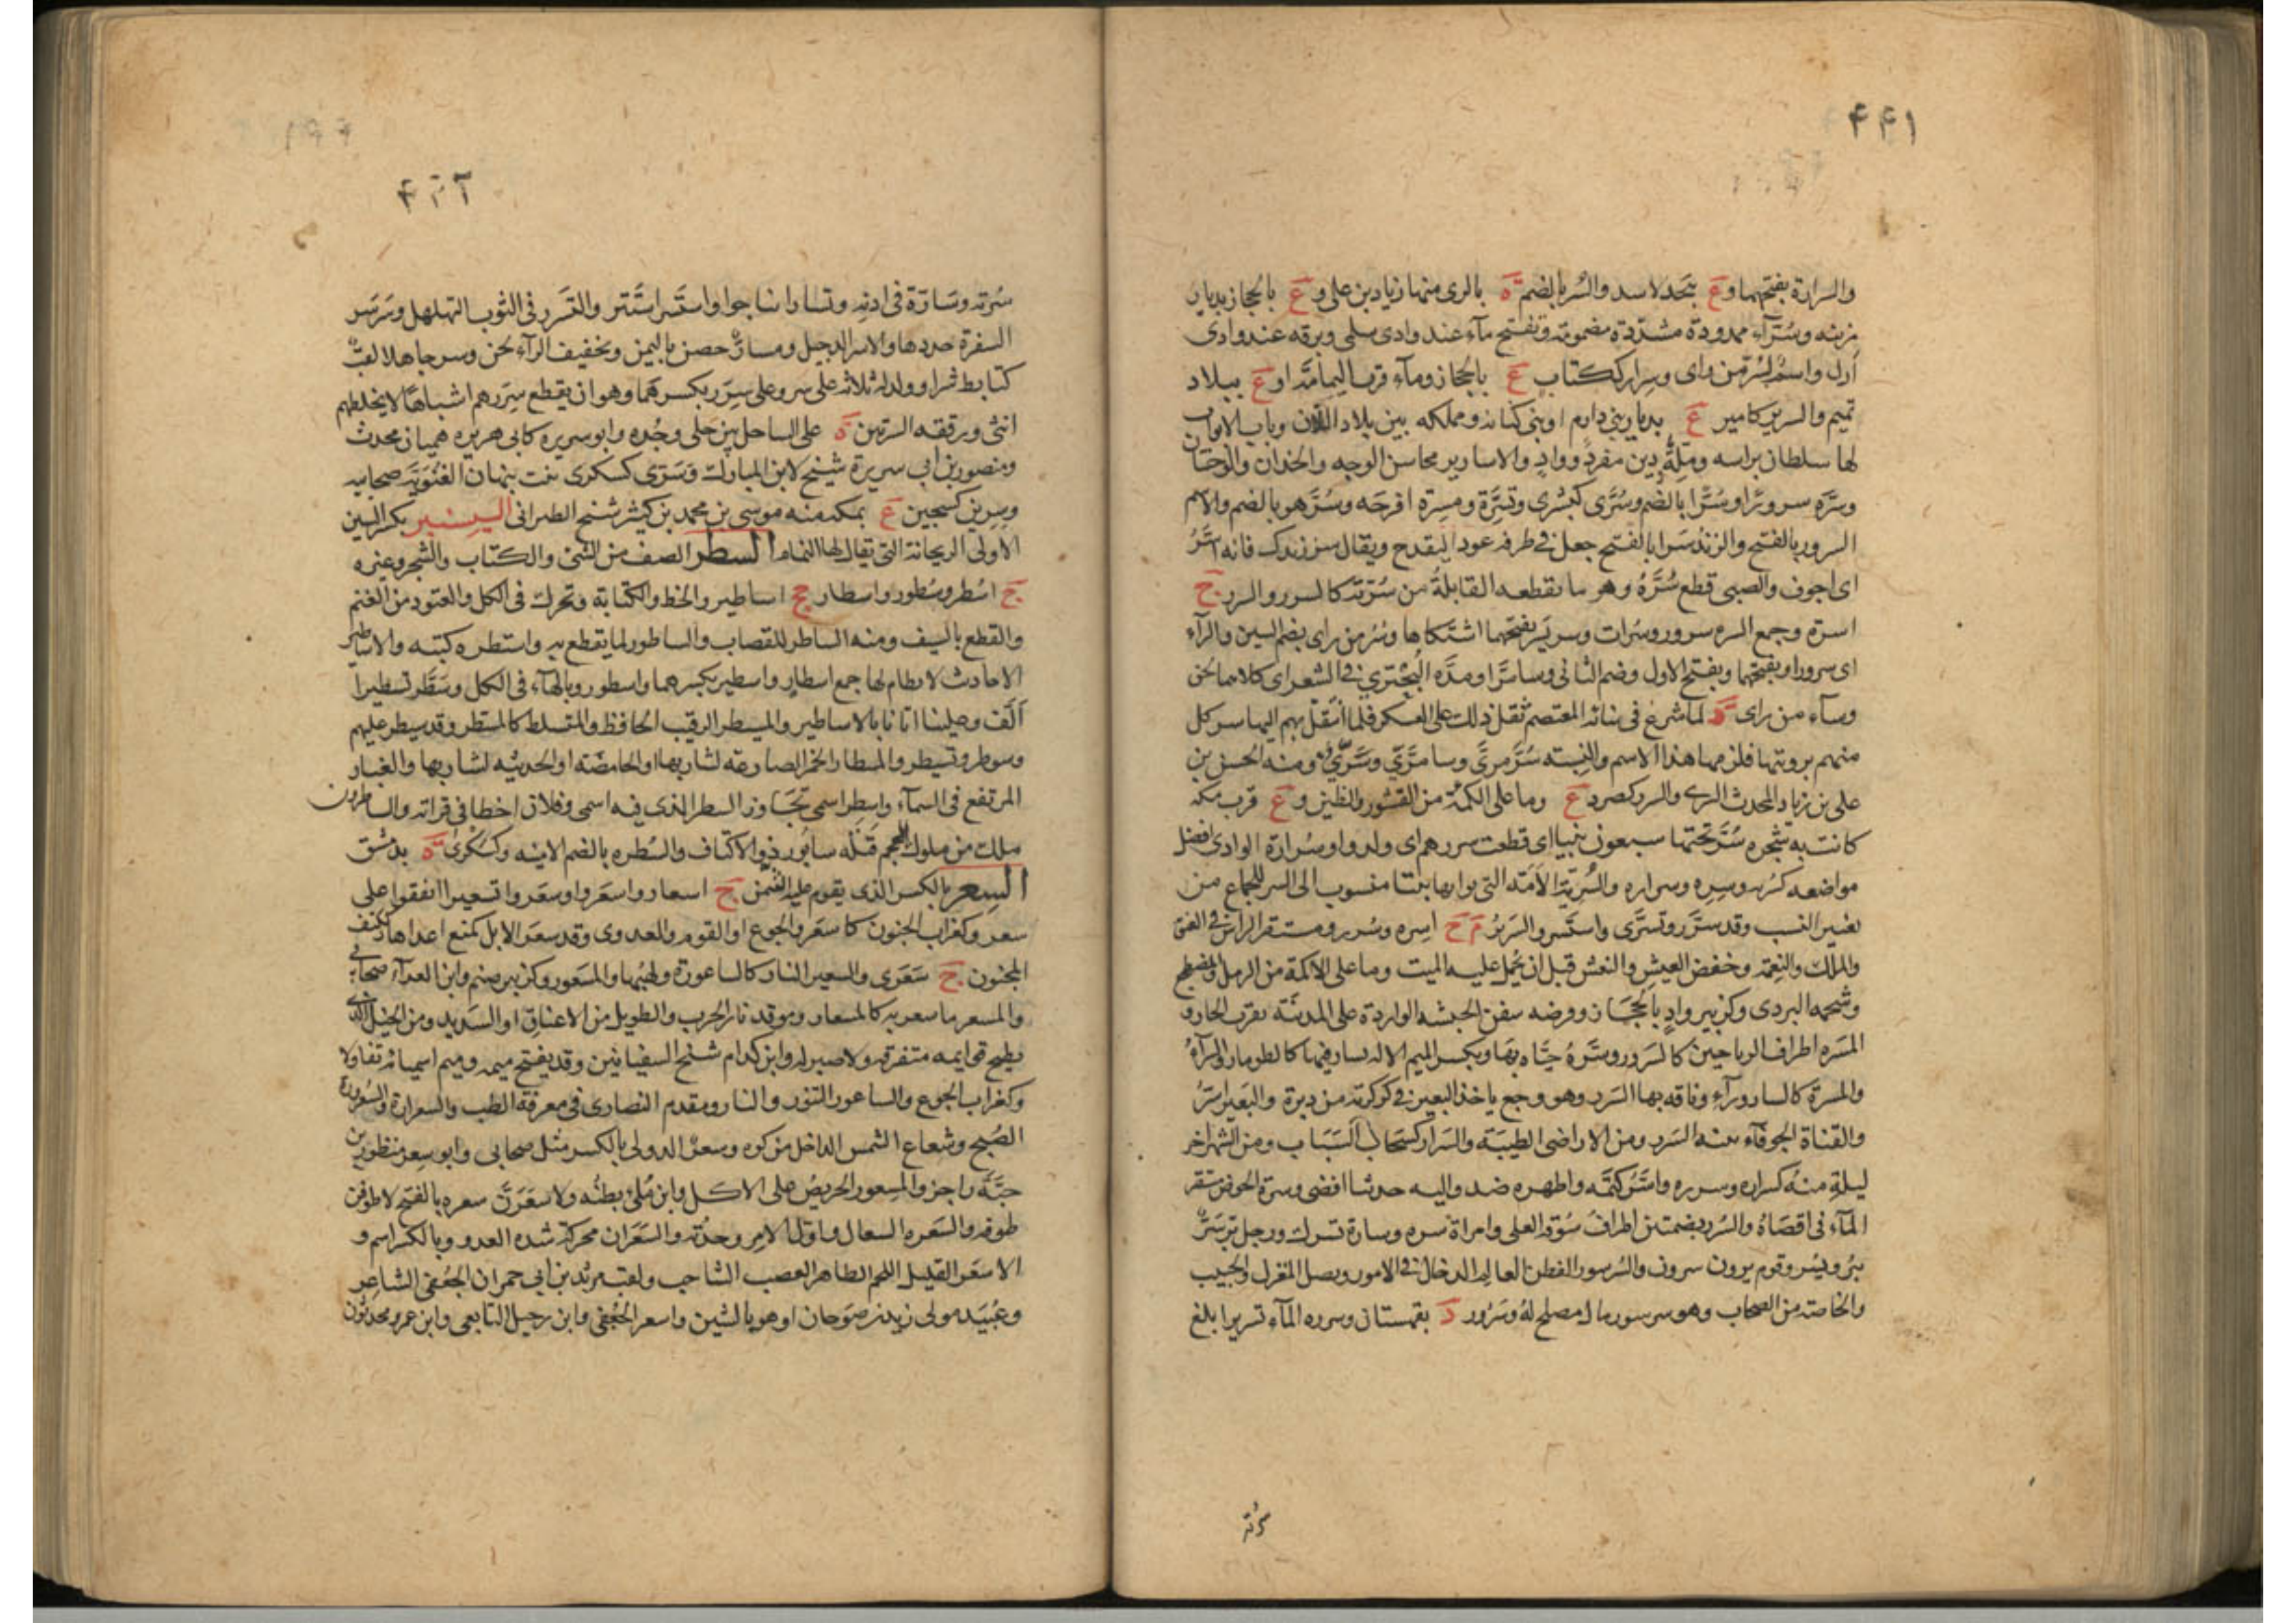 ۴۴۱
والسرارة بفتحهما و ع بنجد لاسد والسر بالضم ة بالرى منها زياد بن على و ع بالحجاز بديار
مزينه وسرآء ممدودة مشددة مضمومة وتفتح مآء عند وادى سلمى وبرقه عند وادى
أرل واسم لسر من راى وسرار ككتاب ع بالحجاز ومآء قرب اليمامة او ع ببلاد
تميم والسرير كامير ع بديار بنى دارم او بنى كنانه ومملكه بين بلاد اللان وباب الابواب
لها سلطان براسه وملة دين مفرد وواد والاسارير محاسن الوجه والخدان والوجنتان
وسره سرورا وسرا بالضم وسرى كبشرى وتسرة ومسرة افرحه وسر هو بالضم والاسم
السرور بالفتح والزند سرا بالفتح جعل في طرفه عودا ليقدح ويقال سر زندك فانه اسر
اى اجوف والصبى قطع سره وهو ما تقطعه القابلة من سرته كالسرر والسرر ج
اسرة وجمع السره سرر وسرات وسر يسر بفتحهما اشتكاها وسر من راى بضم السين والرآء
اى سرور او بفتحهما وبفتح الاول وضم الثانى وسامرا ومده البحترى في الشعر اى كلاهما لحن
وسآء من راى د لما شرع فى بنائه المعتصم ثقل ذلك على العسكر فلما انتقل بهم اليها سر كل
منهم برويتها فلزمها هذا الاسم والنسبته سرمرى وسامرى وسرى ومنه الحسن بن
على بن زياد المحدث السرى والسرر كصرد ع وما على الكماة من القشور والطين و ع قرب مكه
كانت به شجره سر تحتها سبعون نبيا اى قطعت سررهم اى ولدوا وسرارة الوادى افضل
مواضعه كسره وسره وسراره والسرية الامة التى بوابها بيتا منسوب الى السر للجماع من
تغير النسب وقد سرر وتسرى واستسر والسرير م ج اسره وسرر ومستقر الراس في العنق
والملك والنعمة وخفض العيش والنعش قبل ان يحمل عليه الميت وما على الاكمة من الرمل والمضطجع
وشحمه البردى وكزبير واد بالحجاز وفرضه سفن الحبشه الواردة على المدينة بقرب الجار و
المسره اطراف الرياحين كالسرور وسره حياه بها وبكسر الميم الاله يسار فيها كالطومار والسرآء
والمسرة كالسارورآء وناقه بها السرر وهو وجع ياخذ البعير في كركرته من دبرة والبعير اسر
والقناة الجوفآء بينه السرر ومن الاراضى الطيبة والسرار كسحاب السباب ومن الشهر اخر
ليلة منه كسراره وسرره واسره كتمه واظهره ضد واليه حديثا افضى وسرة الحوض مستقر
المآء فى اقصاه والسرر بضمتين اطراف سوقه العلى وامراة سره وسارة تسرك ورجل بر سر
يبر ويسر وقوم برون سرون والسرسور الفطن العالم الدخال في الامور ونصل المغزل والحبيب
والخاصة من الصحاب وهو سرسور مال مصلح له وسرور د بقهستان وسرره المآء تسريرا بلغ
سرته
۴۴۲
سرته وساره فى اذنه وتساروا تناجوا واستسر استتر والتسرر فى الثوب التهلهل وسرسر
السفرة حددها والاسر الدخيل ومسار حصن باليمن وتخفيف الرآء لحن وسرجاهلا لقب
كتابط شرا وولد له ثلاثه على سر وعلى سرر بكسرهما وهو ان يقطع سررهم اشباها لا يخلطهم
انثى ورتقه السرين ة على الساحل بين حلى وجده وابو سريره كابى هريره هميان محدث
ومنصور بن ابى سريرة شيخ لابن المبارك وسرى كسكرى بنت نبهان الغنوية صحابيه
وسرين كسجين ع بمكه منه موسى بن محمد بن كثير شيخ الطبرانى السيسنبر بكسر السين
الاولى الريحانة التى يقال لها النمام السطر الصف من الشئ والكتاب والشجر وغيره
ج اسطر وسطور واسطار جج اساطير والخط والكتابة وتحرك فى الكل والعتود من الغنم
والقطع بالسيف ومنه الساطر للقصاب والساطور لما يقطع به واستطره كتبه والاساطير
الاحاديث لا نظام لها جمع اسطار واسطير بكسرهما واسطور وبالهآء فى الكل وسطر تسطيرا
الف وعلينا اتانا بالاساطير والمسيطر الرقيب الحافظ والمتسلط كالمسطر وقد سيطر عليهم
وسوطر وتسيطر والمسطار الخمر الصارعة لشاربها او الحامضة او الحديثه لشاربها والغبار
المرتفع فى السمآء واسطر اسمى تجاوز السطر الذى فيه اسمى وفلان اخطا فى قراته والساطرون
ملك من ملوك العجم قتله سابور ذو الاكتاف والسطره بالضم الامنيه وكسكرى ة بدمشق
السعر بالكسر الذى يقوم عليه الثمن ج اسعار واسعروا وسعروا تسعيرا اتفقوا على
سعر وكغراب الجنون كالسعر والجوع او القوم والعدوى وقد سعر الابل كمنع اعداها وككتف
المجنون ج سعرى والسعير النار كالساعورة ولهبها والمسعور وكزبير صنم وابن العدآء صحابى
والمسعر ما سعر به كالمسعار وموقد نار الحرب والطويل من الاعناق او الشديد ومن الخيل الذى
يطيح قوايمه متفرقه ولا صبر له وابن كدام شيخ السفيانين وقد يفتح ميمه وميم اسميائه تفاولا
وكغراب الجوع والساعور التنور والنار ومقدم النصارى فى معرفة الطب والسعرارة والسعرورة
الصبح وشعاع الشمس الداخل من كوه وسعر الدولى بالكسر مثل صحابى وابو سعر منظور بن
حبة راجز والمسعور الحريص على الاكل وان ملئ بطنه ولاسعرن سعره بالفتح لاطوفن
طوفه والسعره السعال واول الامر وحدته والسعران محركة شده العدو وبالكسر اسم و
الاسعر القليل اللحم الظاهر العصب الشاحب ولقب مرثد بن ابى حمران الجعفى الشاعر
وعبيد مولى زيد بن صوحان او هو بالشين واسعر الجعفى وابن رحيل التابعى وابن عمرو محدثون